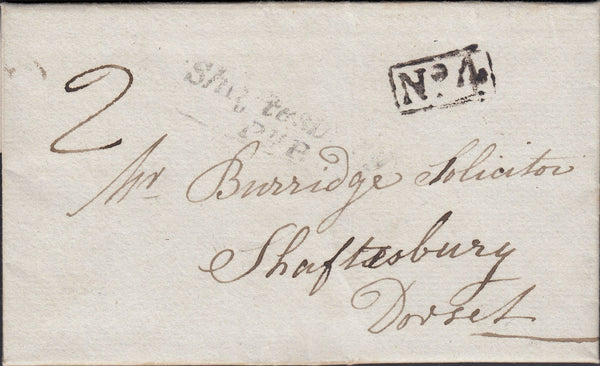 2
No. 4
Shaftesbury
Py P.
Mr Burridge Solicitor
Shaftesbury
Dorset